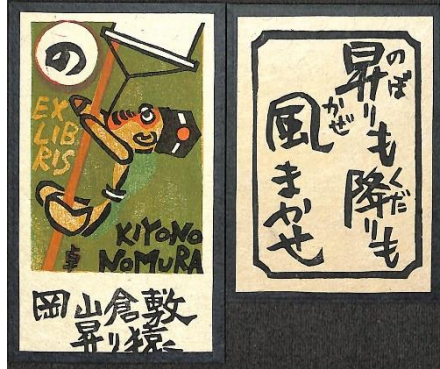 の
EX
LIB
RIS
KIYONO
NOMURA
卓
岡山倉敷
昇り猿
昇りも降りも
のぼ
くだ
風まかせ
かぜ